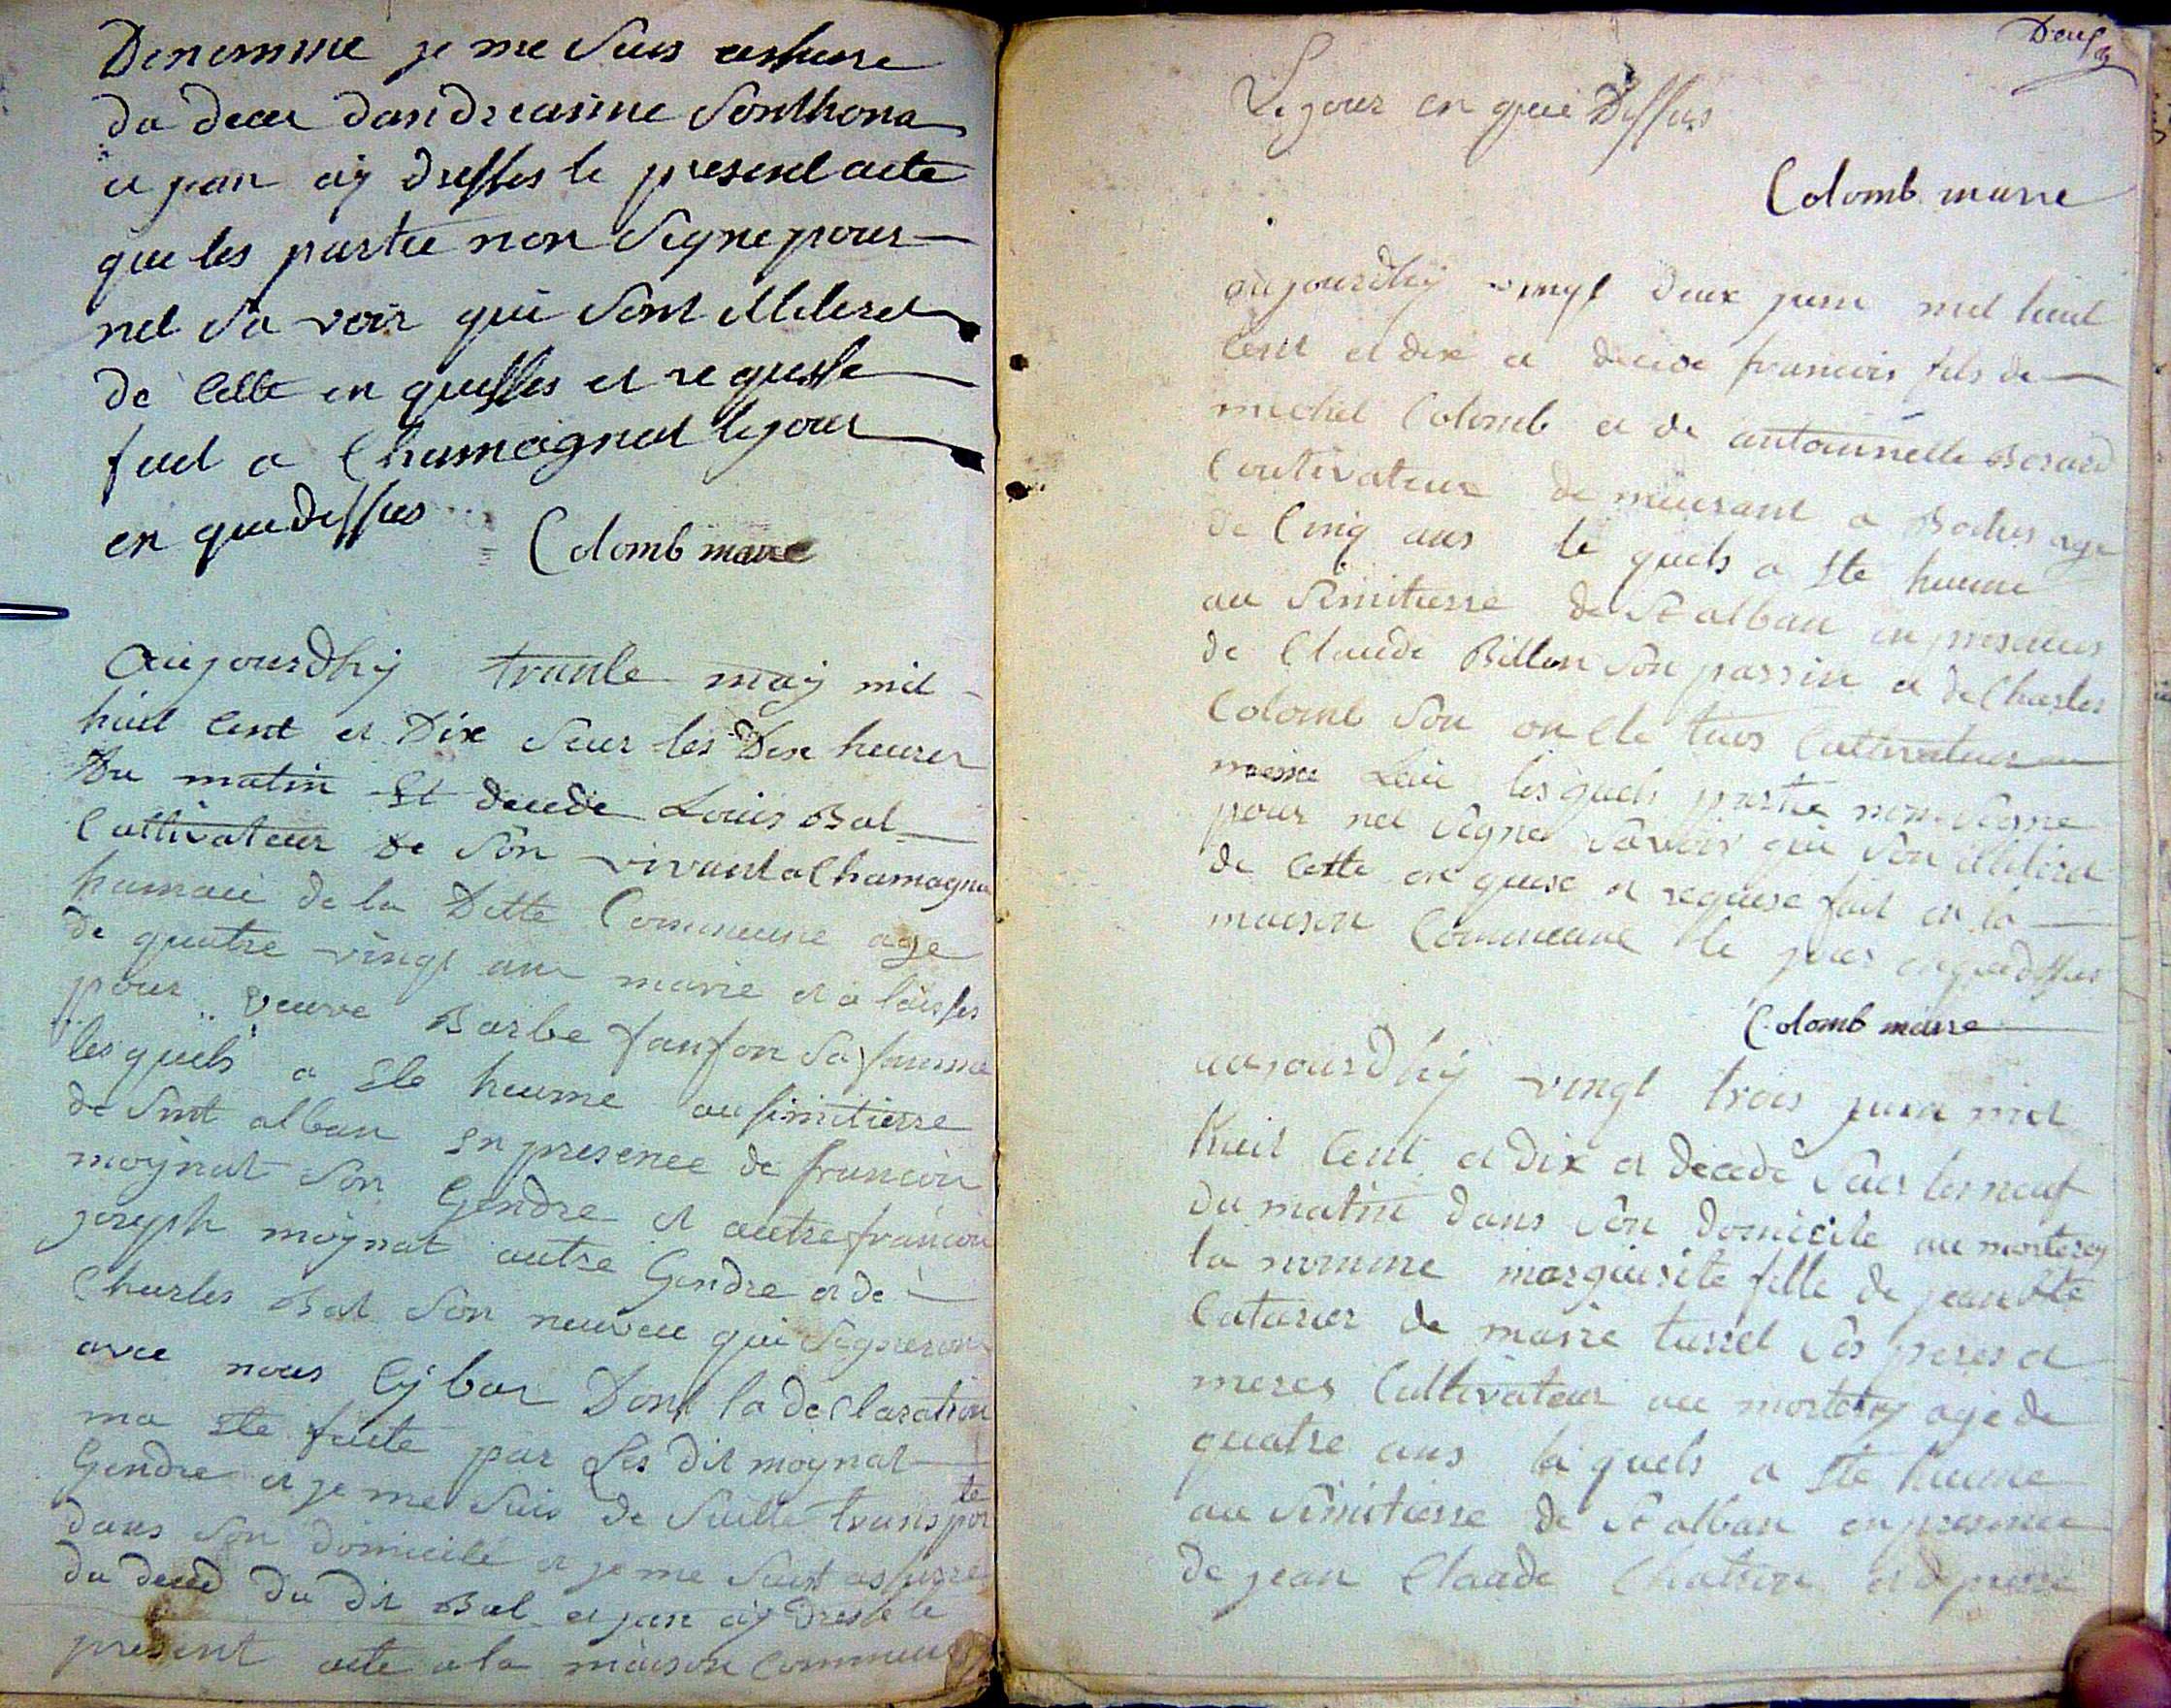 Denomme je me suis assure
du deces dandreanne Sonthona
et jean aÿ dresses le present acte
que les partie non signe pour
net sa voir qui sont illiteret
de celle en quesses et requesse
fait a Chamagnat le jour
en que dessus
Colomb maire
aujourdhÿ trante maÿ mil
huit cent et dix sur les dix heures
du matin Et decede Louis Bal
cultivateur de son vivant a Chamagna
hamau de la ditte Commune age
de quatre vingt ans marie et a laisses
pour veuve Barbe fanfon sa famme
lesquels a Ete heume au simitierre
de sint alban En presence de francois
moÿnat son Gendre et autre francois
joseph moÿnat autre Gendre et de
Charles Bal son neuveu qui signeron
avec nous Cÿ bas Dont la declaration
ma Ete faite par Les dit moynat
Gendre et je me suis de suitte transpor
te
dans son domicile et je me suis assurre
du deced du dit Bal et jan aÿ dresse le
present acte a la maison commune
Deux
Le jour en que Dessus
Colomb maire
aujourdhÿ vingt deux juin mil huit
cent et dix et decede francois fils de
michel Colomb et de antoinnette Borard
Coultivateur de meurant a Bodus age
de Cinq ans le quels a Ete heume
au Simitierre de St alban en presence
de Claude Billon son parrin et de Charles
Colomb son oncle tous Cultivateur
meme Leui lesquels partie non signe
pour net signe savoir qui son illitera
de cette en quise et requise fait en la
maison Commune le jour en que dessus
Colomb maire
aujourdhÿ vingt trois juin mil
huit Cent et dix et decede sur les neuf
du matin dans son domicile au morterey
la nomme marguerite fille de jean Bte
Catarier de marie turrel ses peres et
meres Cultivateur au morterey age de
quatre ans la quels a Ete heume
au Simitierre de St alban en presence
de jean Claude Chatron et de pierre